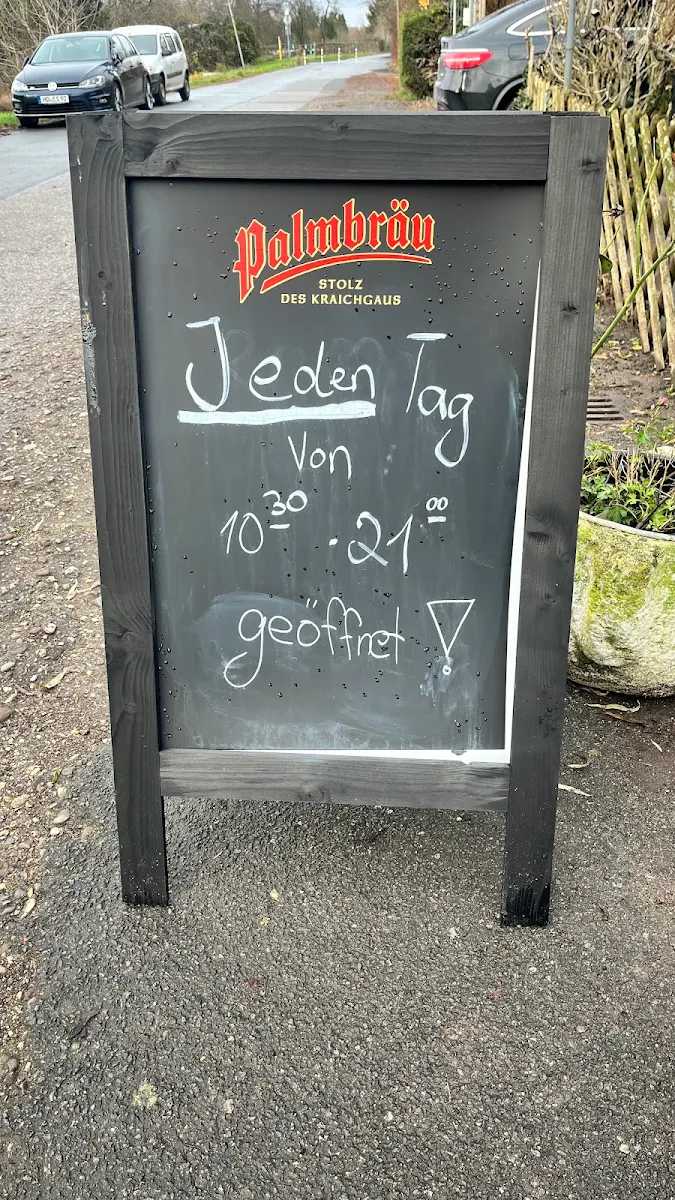 Palmbräu
STOLZ
DES KRAICHGAUS
Jeden Tag
von
10³⁰ · 21⁰⁰
geöffnet !